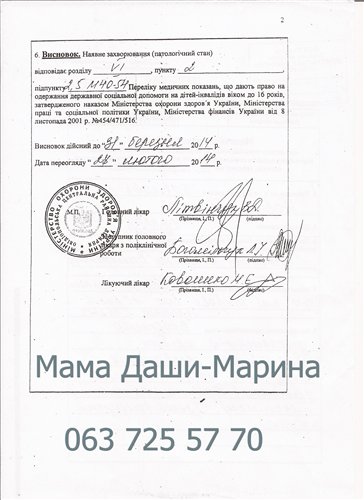 2
6. Висновок. Наявне захворювання (патологічний стан)
відповідає розділу VI , пункту 2
підпункту Переліку медичних показань, що дають право на
одержання державної соціальної допомоги на дітей-інвалідів віком до 16 років,
затвердженого наказом Міністерства охорони здоров´я України, Міністерства
праці та соціальної політики України, Міністерства фінансів України від 8
листопада 2001 р. №454/471/516.
Висновок дійсний до «31» березня 2014 р.
Дата переогляду «28» лютого 2014 р.
М.П. Головний лікар
(Прізвище, І., П.) (підпис)
Заступник головного
лікаря з поліклінічної
роботи
(Прізвище, І., П.) (підпис)
Лікуючий лікар Коваленко
(Прізвище, І., П.) (підпис)
Мама Даши-Марина
063 725 57 70